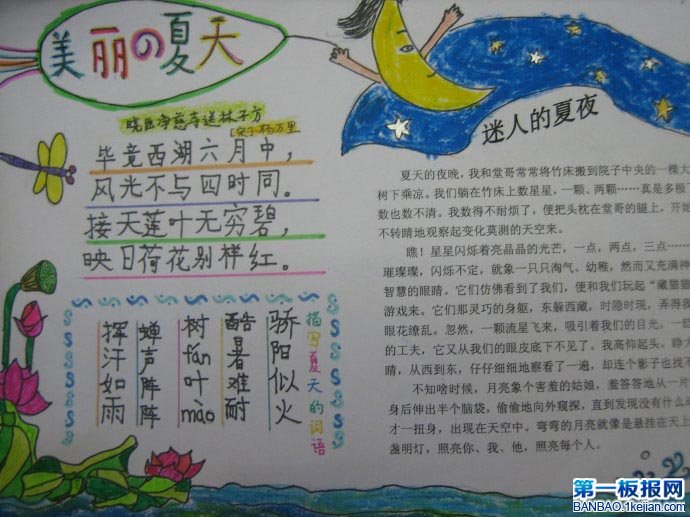 美丽の夏天
晓出净慈寺送林子方
[宋]杨万里
毕竟西湖六月中，
风光不与四时同。
接天莲叶无穷碧，
映日荷花别样红。
描写夏天的词语
骄阳似火
酷暑难耐
树yīn叶mào
蝉声阵阵
挥汗如雨
迷人的夏夜
夏天的夜晚，我和堂哥常常将竹床搬到院子中央的一棵大
树下乘凉。我们躺在竹床上数星星，一颗、两颗……真是多极
数也数不清。我数得不耐烦了，便把头枕在堂哥的腿上，开始
不转睛地观察起变化莫测的天空来。
瞧！星星闪烁着亮晶晶的光芒，一点，两点，三点……
璀璨璨，闪烁不定，就象一只只淘气、幼稚，然而又充满神
智慧的眼睛。它们仿佛看到了我们，便和我们玩起“藏猫猫
游戏来。它们那灵巧的身躯，东躲西藏，时隐时现，弄得我
眼花缭乱。忽然，一颗流星飞来，吸引着我们的目光，一眨
的工夫，它又从我们的眼皮底下不见了。我高仰起头，睁大
睛，从西到东，仔仔细细地察看了一遍，却连个影子也找不
不知啥时候，月亮象个害羞的姑娘，羞答答地从一片
身后伸出半个脑袋，偷偷地向外窥探，直到发现没有什么动
才一扭身，出现在天空中。弯弯的月亮就像是悬挂在天上
盏明灯，照亮你、我、他，照亮每个人。
第一板报网
BANBAO.1kejian.com